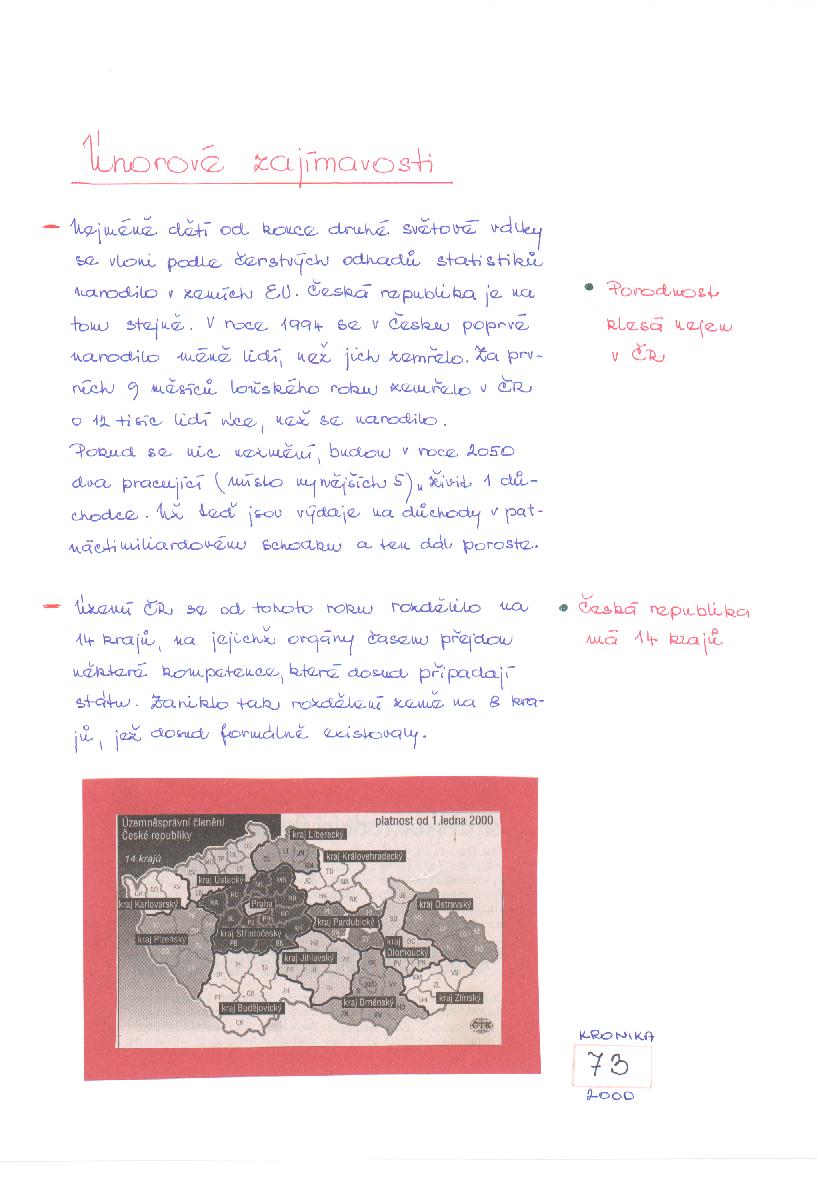 Únorové zajímavosti
– Nejméně dětí od konce druhé světové války
se vloni podle čerstvých odhadů statistiků
narodilo v zemích EU. Česká republika je na
tom stejně. V roce 1994 se v Česku poprvé
narodilo méně lidí, než jich zemřelo. Za prv-
ních 9 měsíců loňského roku zemřelo v ČR
o 12 tisíc lidí více, než se narodilo.
Pokud se nic nezmění, budou v roce 2050
dva pracující (místo nynějších 5) „živit 1 dů-
chodce. Už teď jsou výdaje na důchody v pat-
náctimiliardovém schodku a ten dál poroste.
• Porodnost
klesá nejen
v ČR
– Území ČR se od tohoto roku rozdělilo na
14 krajů, na jejichž orgány časem přejdou
některé kompetence, které dosud připadají
státu. Zaniklo tak rozdělení země na 8 kra-
jů, jež dosud formálně existovaly.
• Česká republika
má 14 krajů
Územněsprávní členění
České republiky
14 krajů
platnost od 1.ledna 2000
kraj Liberecký
kraj Královehradecký
kraj Ústecký
kraj Karlovarský
Praha
kraj Ostravský
kraj Pardubický
kraj Středočeský
kraj Plzeňský
kraj Olomoucký
kraj Jihlavský
kraj Brněnský
kraj Zlínský
kraj Budějovický
ČTK
KRONIKA
73
2000